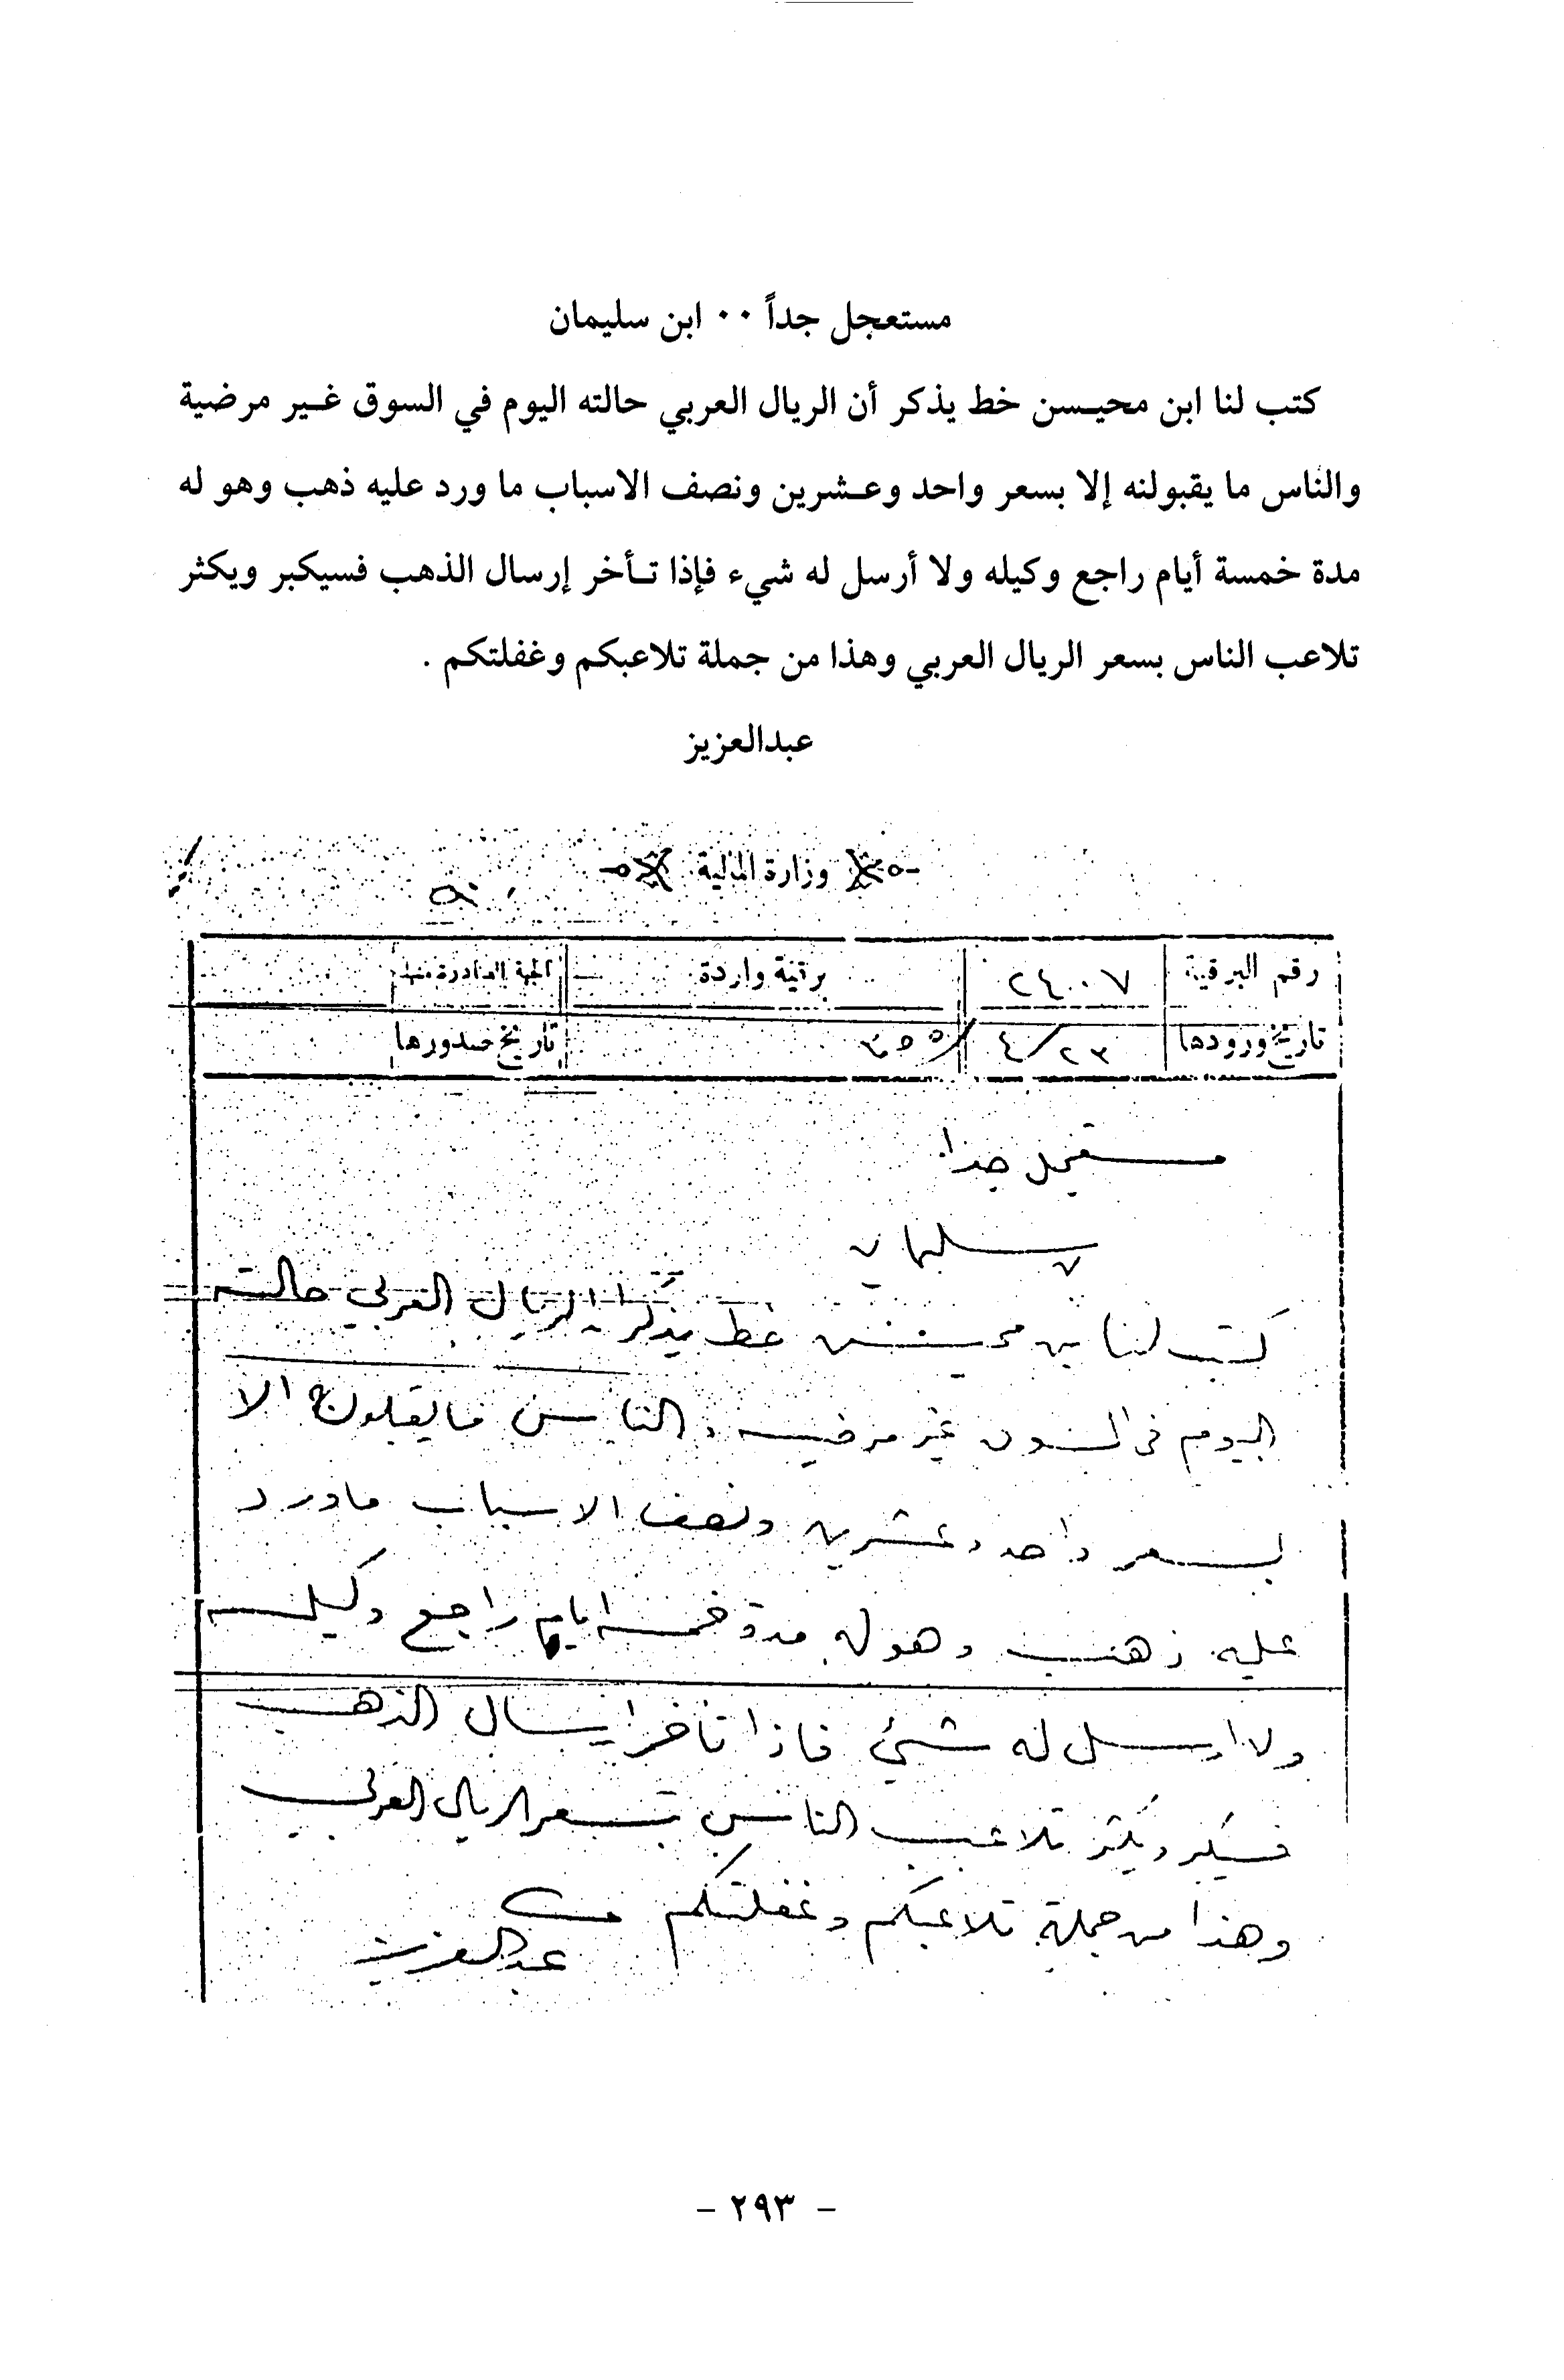 مستعجل جداً ٠٠ ابن سليمان
كتب لنا ابن محيسن خط يذكر أن الريال العربي حالته اليوم في السوق غير مرضية
والناس ما يقبولنه إلا بسعر واحد وعشرين ونصف الاسباب ما ورد عليه ذهب وهو له
مدة خمسة أيام راجع وكيله ولا أرسل له شيء فإذا تأخر إرسال الذهب فسيكبر ويكثر
تلاعب الناس بسعر الريال العربي وهذا من جملة تلاعبكم وغفلتكم .
عبدالعزيز
وزارة المالية
رقم البرقية ٢٤٠٠٧ برقية واردة الجهة الصادرة منها
تاريخ ورودها ٢٣/٤/٣٥٥ تاريخ صدورها
مستعجل جدا
بن سليمان
كتب لنا بن محيسن خط يذكر ان الريال العربي حالته
اليوم في السوق غير مرضيه والناس ما يقبلونه الا
بسعر واحد وعشرين ونصف الاسباب ما ورد
عليه ذهب وهو له مدة خمسه ايام راجع وكيله
ولا ارسل له شيئ فاذا تأخر ارسال الذهب
فسيكبر ويكثر تلاعب الناس بسعر الريال العربي
وهذا من جملة تلاعبكم وغفلتكم
عبدالعزيز
- ٢٩٣ -